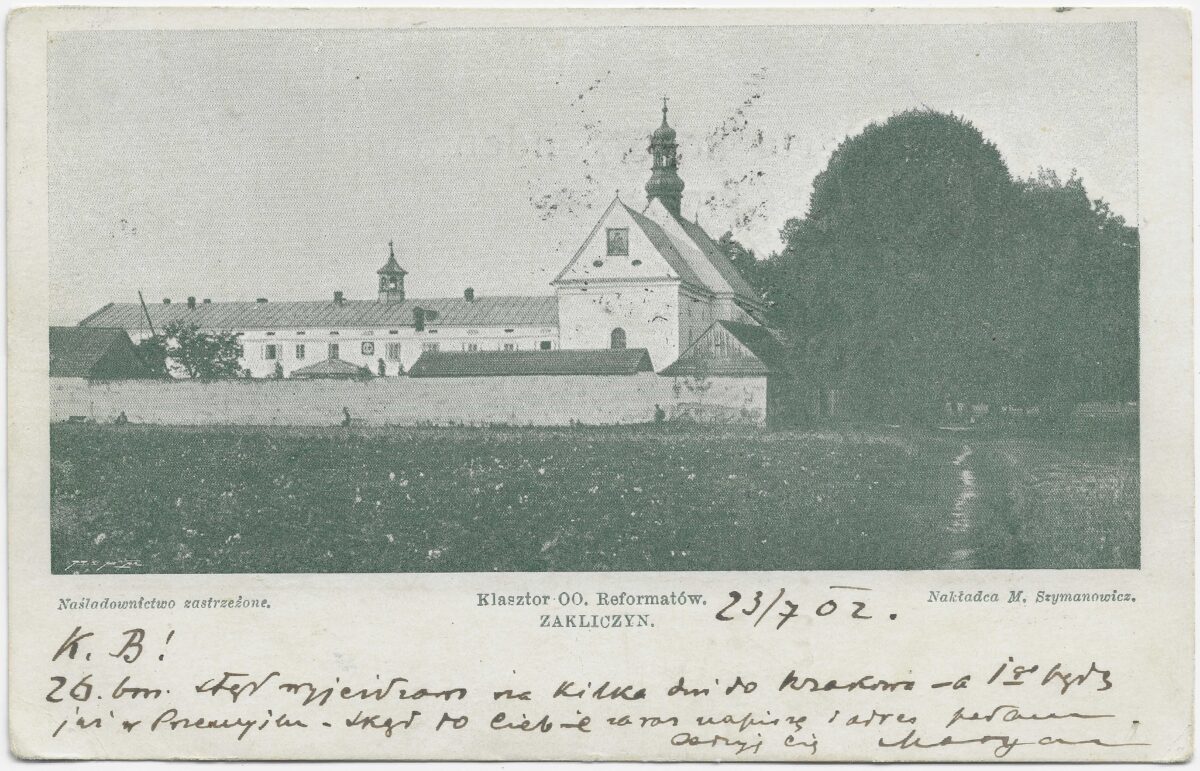 Naśladownictwo zastrzeżone.
Klasztor OO. Reformatów.
ZAKLICZYN.
Nakładca M. Szymanowicz.
23/7 02.
K. B!
26. bm. stąd wyjeżdżam na kilka dni do Krakowa – a 1go będę
już w Przemyślu – skąd do Ciebie zaraz napiszę i adres podam.
Ściskam Cię Maryan